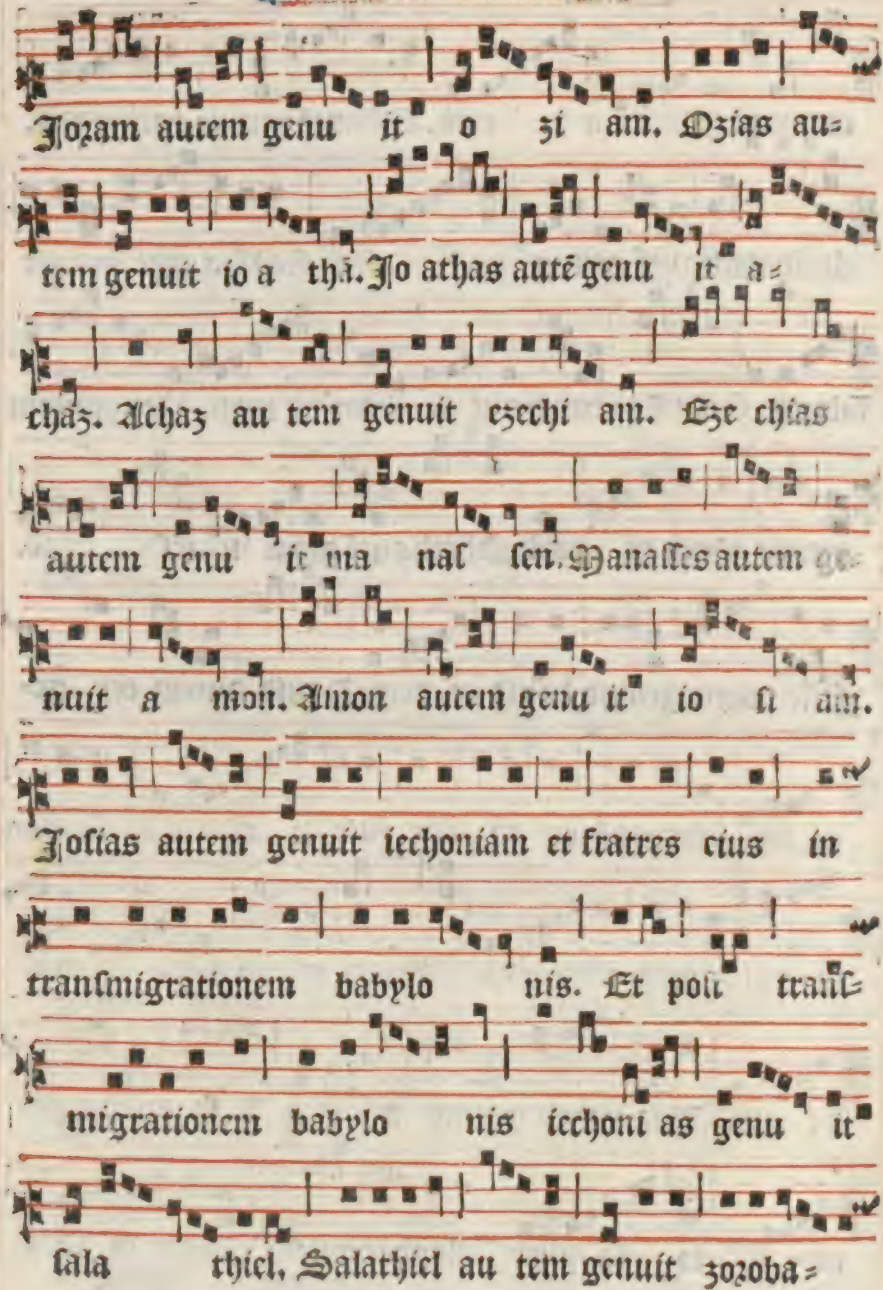 Joꝛam autem genu it o zi am. Ozias au⸗
tem genuit io a thā. Jo athas autē genu it a⸗
chaz. Achaz au tem genuit ezechi am. Eze chias
autem genu it ma naſ ſen. Manaſſes autem ge⸗
nuit a mon. Amon autem genu it io ſi am.
Joſias autem genuit iechoniam et fratres eius in
tranſmigrationem babylo nis. Et poſt tranſ⸗
migrationem babylo nis iechoni as genu it
ſala thiel. Salathiel au tem genuit zoꝛoba⸗